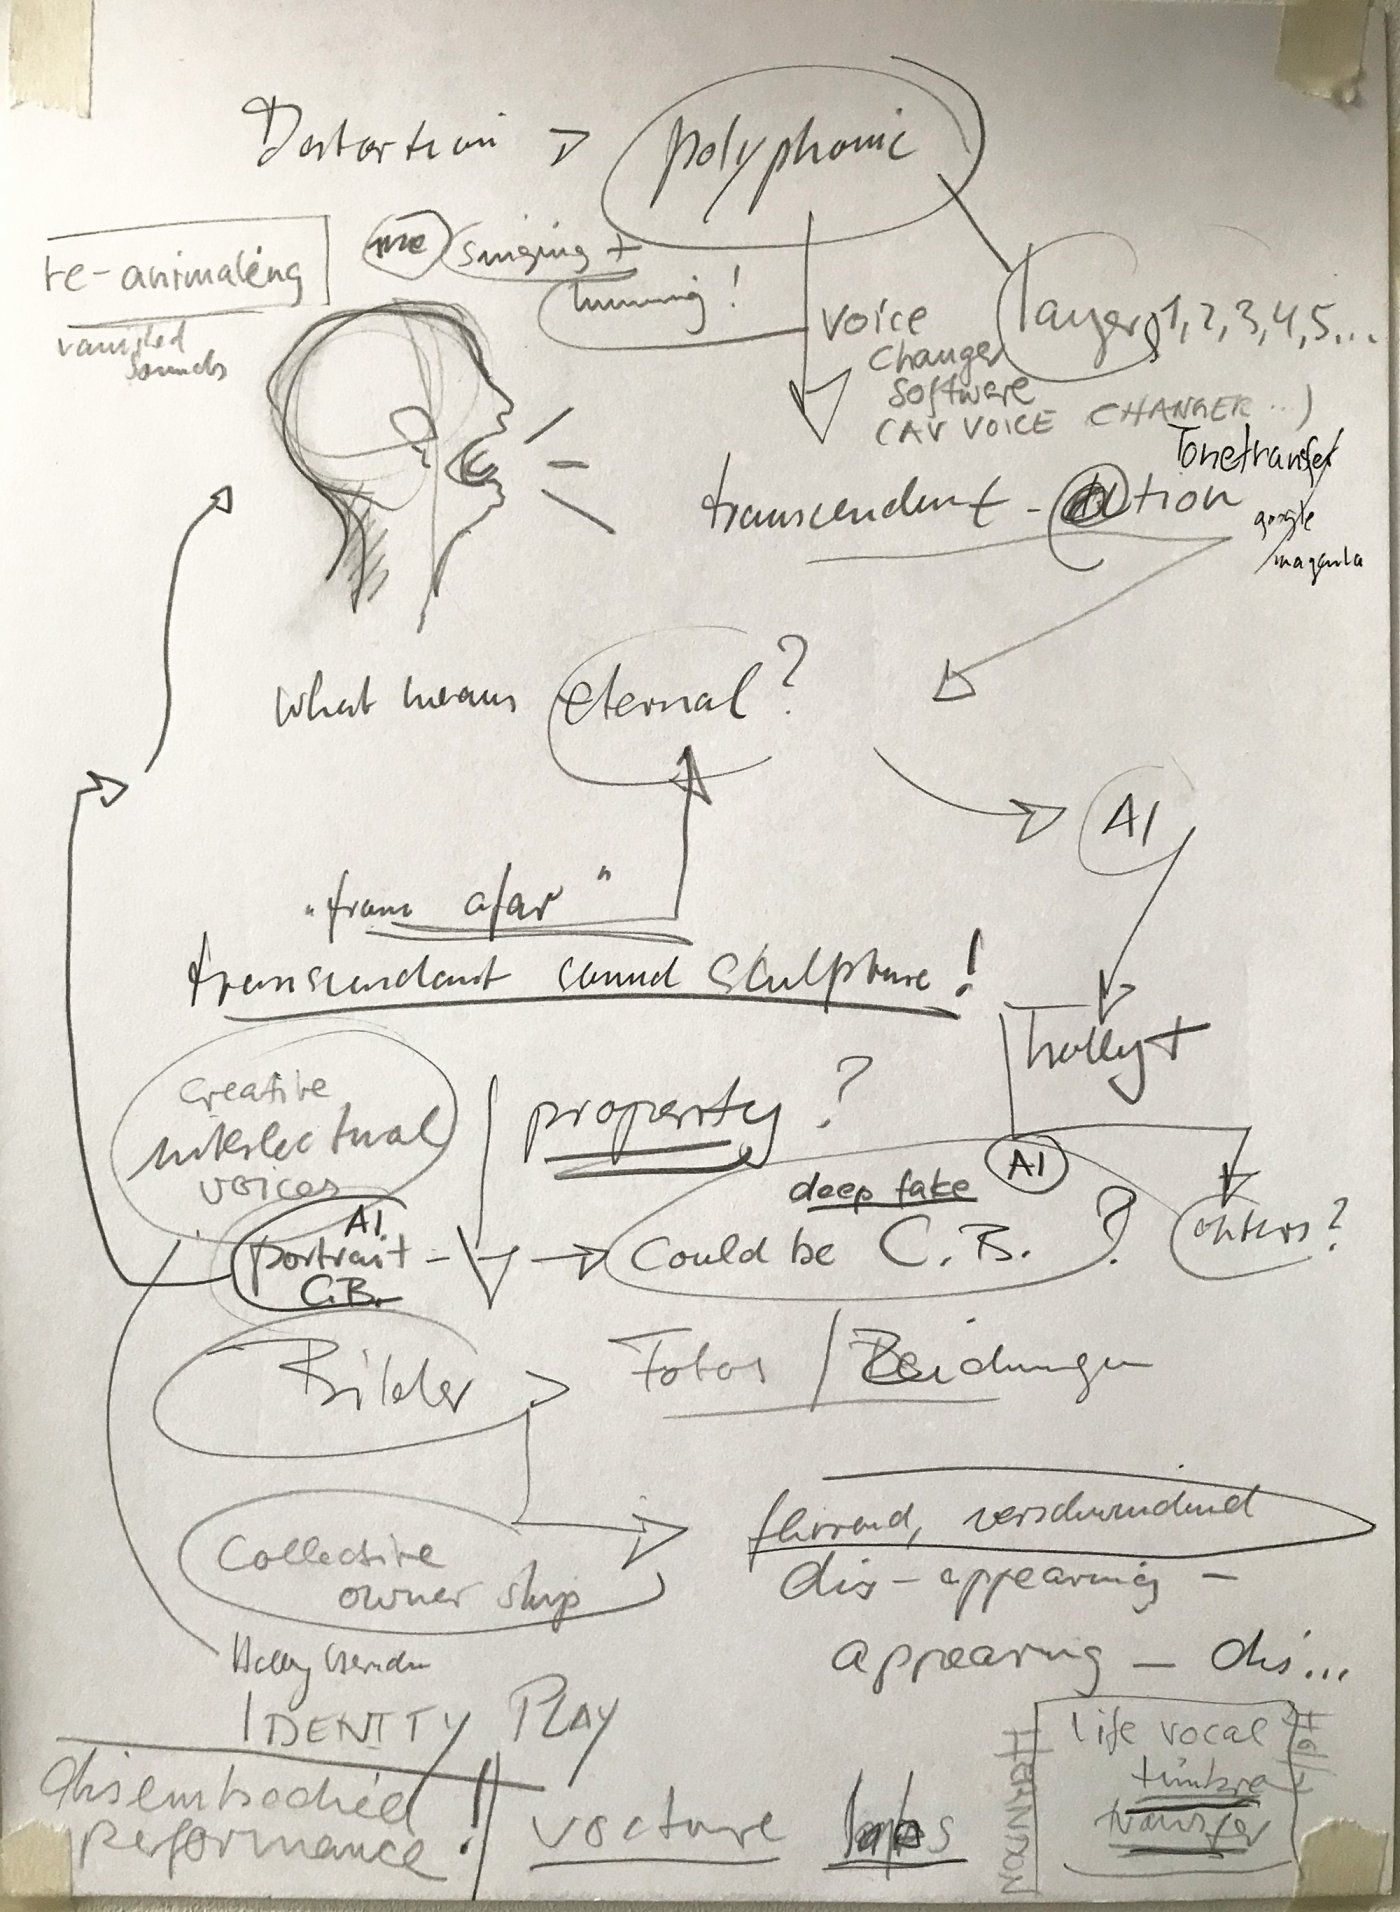 Distortion > polyphonic
re-animating
me singing +
humming!
vanished
sounds
voice
changer
software
(AV VOICE CHANGER...)
layers 1, 2, 3, 4, 5...
Tonetransfer
google
/magenta
transcendent - ation
what means eternal?
AI
"from afar"
transcendant sound sculpture!
holly+
creative
intellectual
voices
property?
AI
deep fake
could be C.B.?
others?
AI.
portrait
C.B.
Bilder > Fotos / Zeichnungen
flirrend, verschwindend
dis-appearing -
appearing - dis...
Collective
ownership
Holly Herndon
IDENTITY PLAY
disembodied
performance!
vocture labs
life vocal
timbre
transfer
HERNDON
Holly